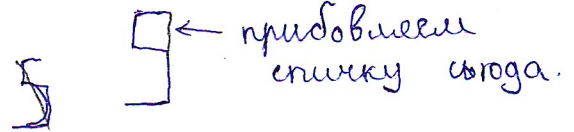 5 9 ← прибовляем
спичку сюда.